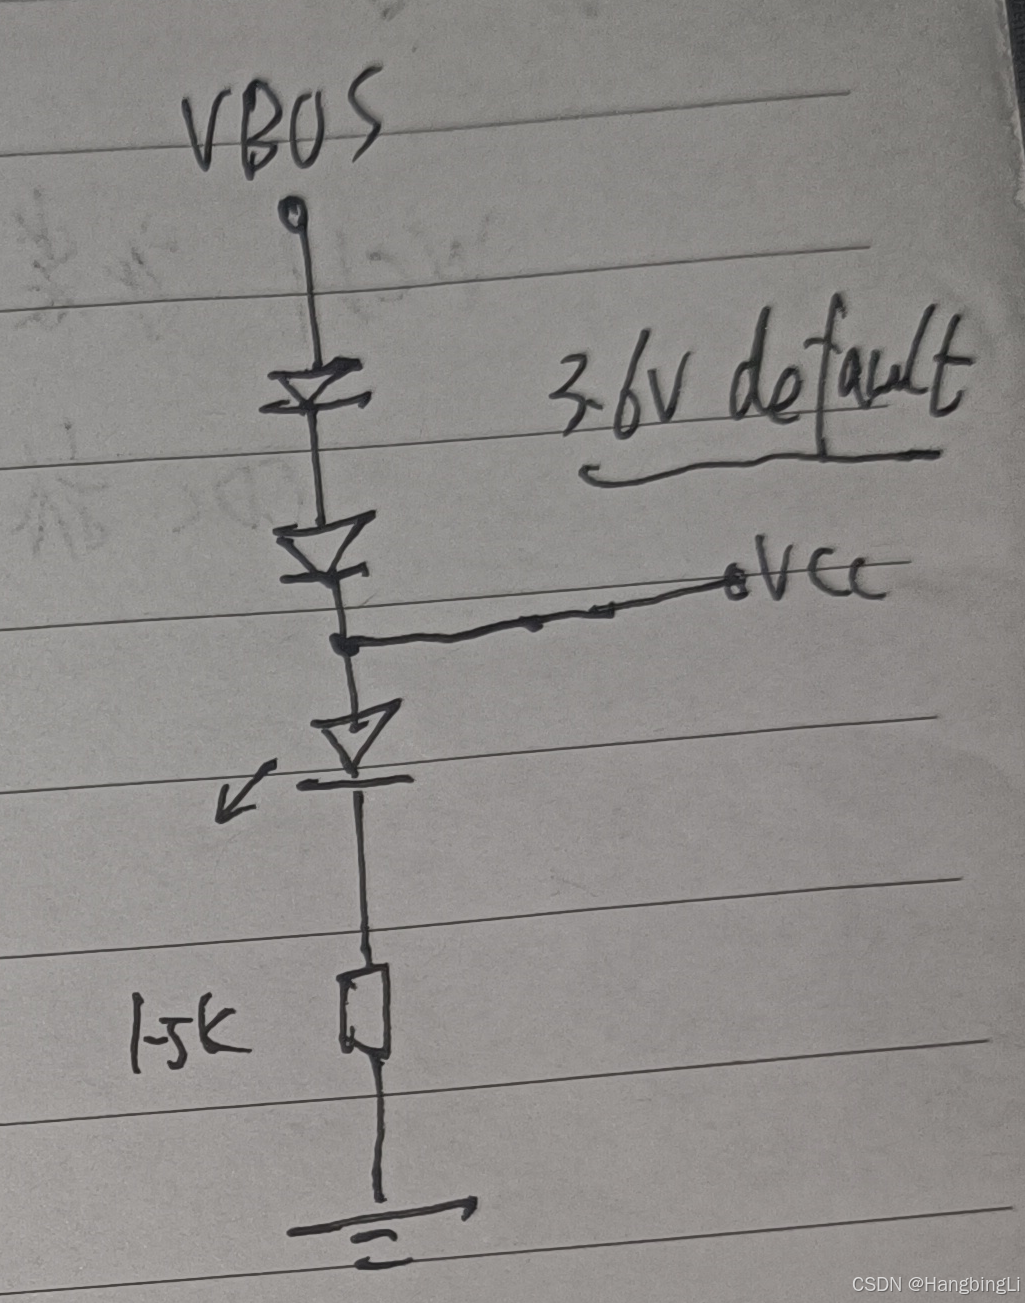 VBUS
3.6V default
VCC
1.5K
CSDN @HangbingLi